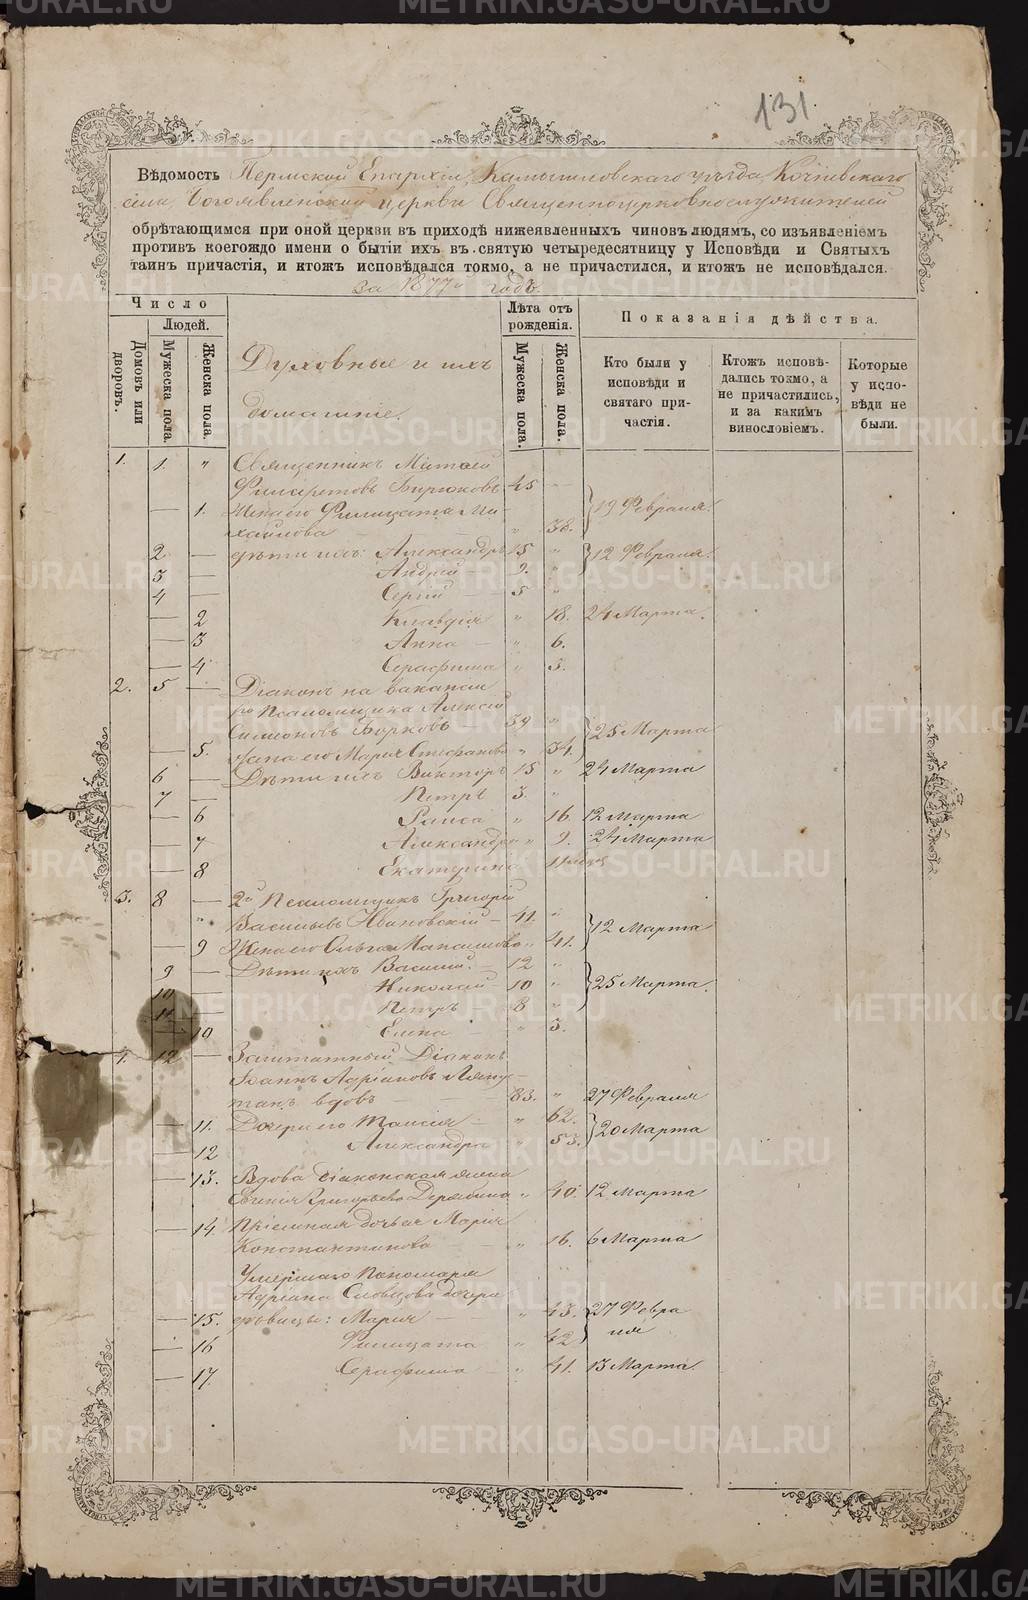 131
Вѣдомость Пермской Епархіи, Камышловскаго уѣзда, Кочневскаго
села, Богоявленской церкви Священноцерковнослужителей
обрѣтающимся при оной церкви въ приходѣ нижеявленныхъ чиновъ людямъ, со изъявленіемъ
противъ коегождо имени о бытіи ихъ въ святую четыредесятницу у Исповѣди и Святыхъ
таинъ причастія, и ктожъ исповѣдался токмо, а не причастился, и ктожъ не исповѣдался.
за 1877й годъ.
Число
Людей.
Домовъ или дворовъ.
Мужеска пола.
Женска пола.
Духовные и ихъ
домашніе.
Лѣта отъ рожденія.
Мужеска пола.
Женска пола.
Показанія дѣйства.
Кто были у исповѣди и святаго причастія.
Ктожъ исповѣдались токмо, а не причастились, и за какимъ винословіемъ.
Которые у исповѣди не были.
1. 1. " Священникъ
Бирюковъ 45 —
— 1. Жена его Филицата Ми-
хайлова " 38. 19 Февраля.
2 — дѣти ихъ: Александръ 15 " 12 Февраля.
3 — Андрей 9. "
4 — Сергій 5 "
— 2 Клавдія " 18. 24 Марта.
— 3 Анна " 6.
— 4 Серафима " 3.
2. 5 — Діаконъ на вакансіи
Псаломщика Алексій
Симеоновъ 39 "
— 5. Жена его Марія Стефанова " 34. 25 Марта
6 — Дѣти ихъ Викторъ 15 " 24 Марта
7 — Петръ 3. "
— 6 Раиса " 16. 12 Марта
— 7 Александра " 9. 24 Марта
— 8 Екатерина
3. 8 — 2й Псаломщикъ Григорій
" Васильевъ Ивановскій — 41. "
— 9 Жена его Ольга " 41. 12 Марта
9 — Дѣти ихъ Василій. — 12 "
10 — Николай — 10 " 25 Марта.
11 — Петръ — 8 "
— 10 Елена " 3.
4. 12 — Заштатный Діаконъ
Іоаннъ Адріановъ
вдовъ 83. " 27 Февраля
— 11. Дочери его Таисія — " 62.
— 12 Александра 53. 20 Марта
— 13. Вдова діаконская жена
Евгенія Григорьева " 40. 12 Марта
— 14. Пріемная дочь ея Марія
Константинова — " 16. 6 Марта
Умершаго Пономаря
Адріана Словцова дочери
— 15. дѣвицы: Марія — " 43. 27 Февра
— 16 Филицата " 42 ля
— 17. Серафима — " 41. 13 Марта.
METRIKI.GASO-URAL.RU